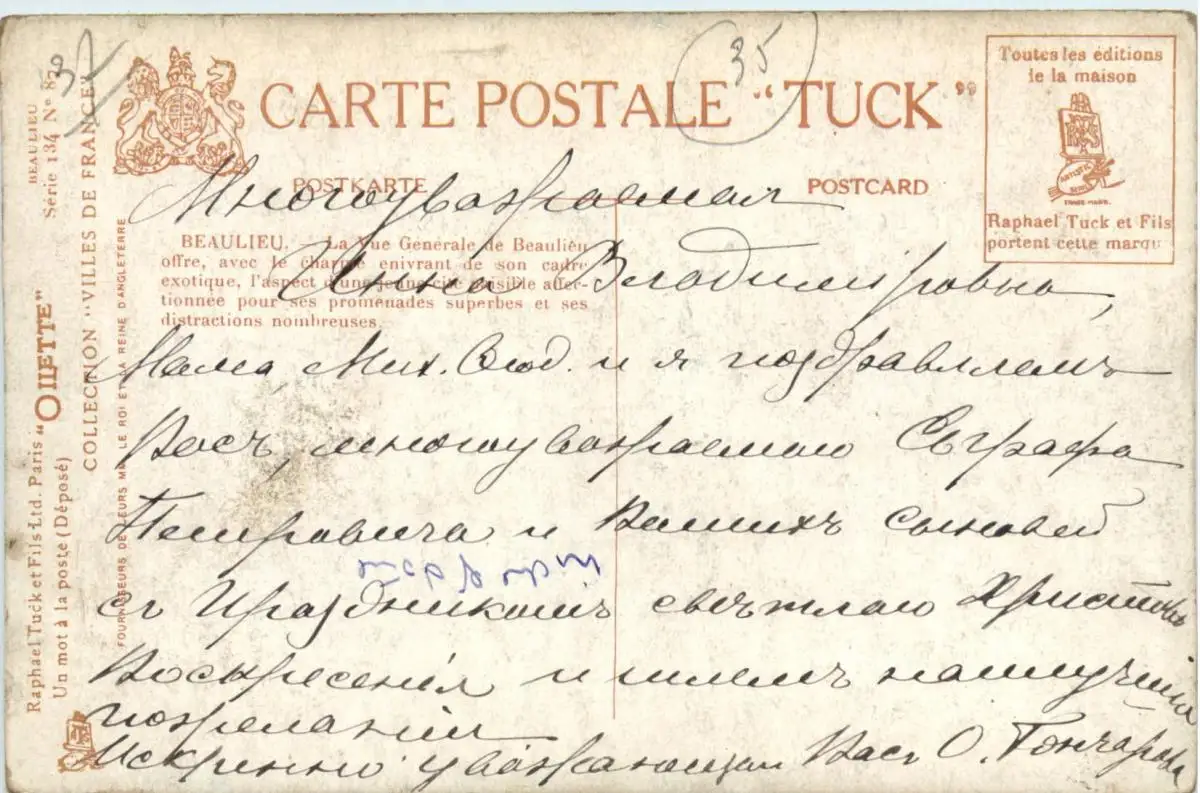 35
CARTE POSTALE “TUCK”
POSTKARTE
POSTCARD
Toutes les éditions
de la maison
ARTISTIC
SERIES
TRADE MARK.
Raphael Tuck et Fils
portent cette marqu
BEAULIEU. — La Vue Générale de Beaulieu
offre, avec le charme enivrant de son cadre
exotique, l'aspect d'une jeune cité paisible affec-
tionnée pour ses promenades superbes et ses
distractions nombreuses.
BEAULIEU
Série 134 No 87
COLLECTION "VILLES DE FRANCE"
FOURNISSEURS DE LEURS MM. LE ROI ET LA REINE D'ANGLETERRE
Raphael Tuck et Fils Ltd. Paris "OILETTE"
Un mot à la poste (Déposé)
Многоуважаемая
Владимировна,
Мама, Мих. и я поздравляемъ
Васъ, многоуважаемаго Евграфа
Петровича и Вашихъ сыновей
съ Праздникомъ свѣтлаго Христова
Воскресенія и шлемъ наилучшія
пожеланія
Искренно уважающая Васъ О. Гончарова